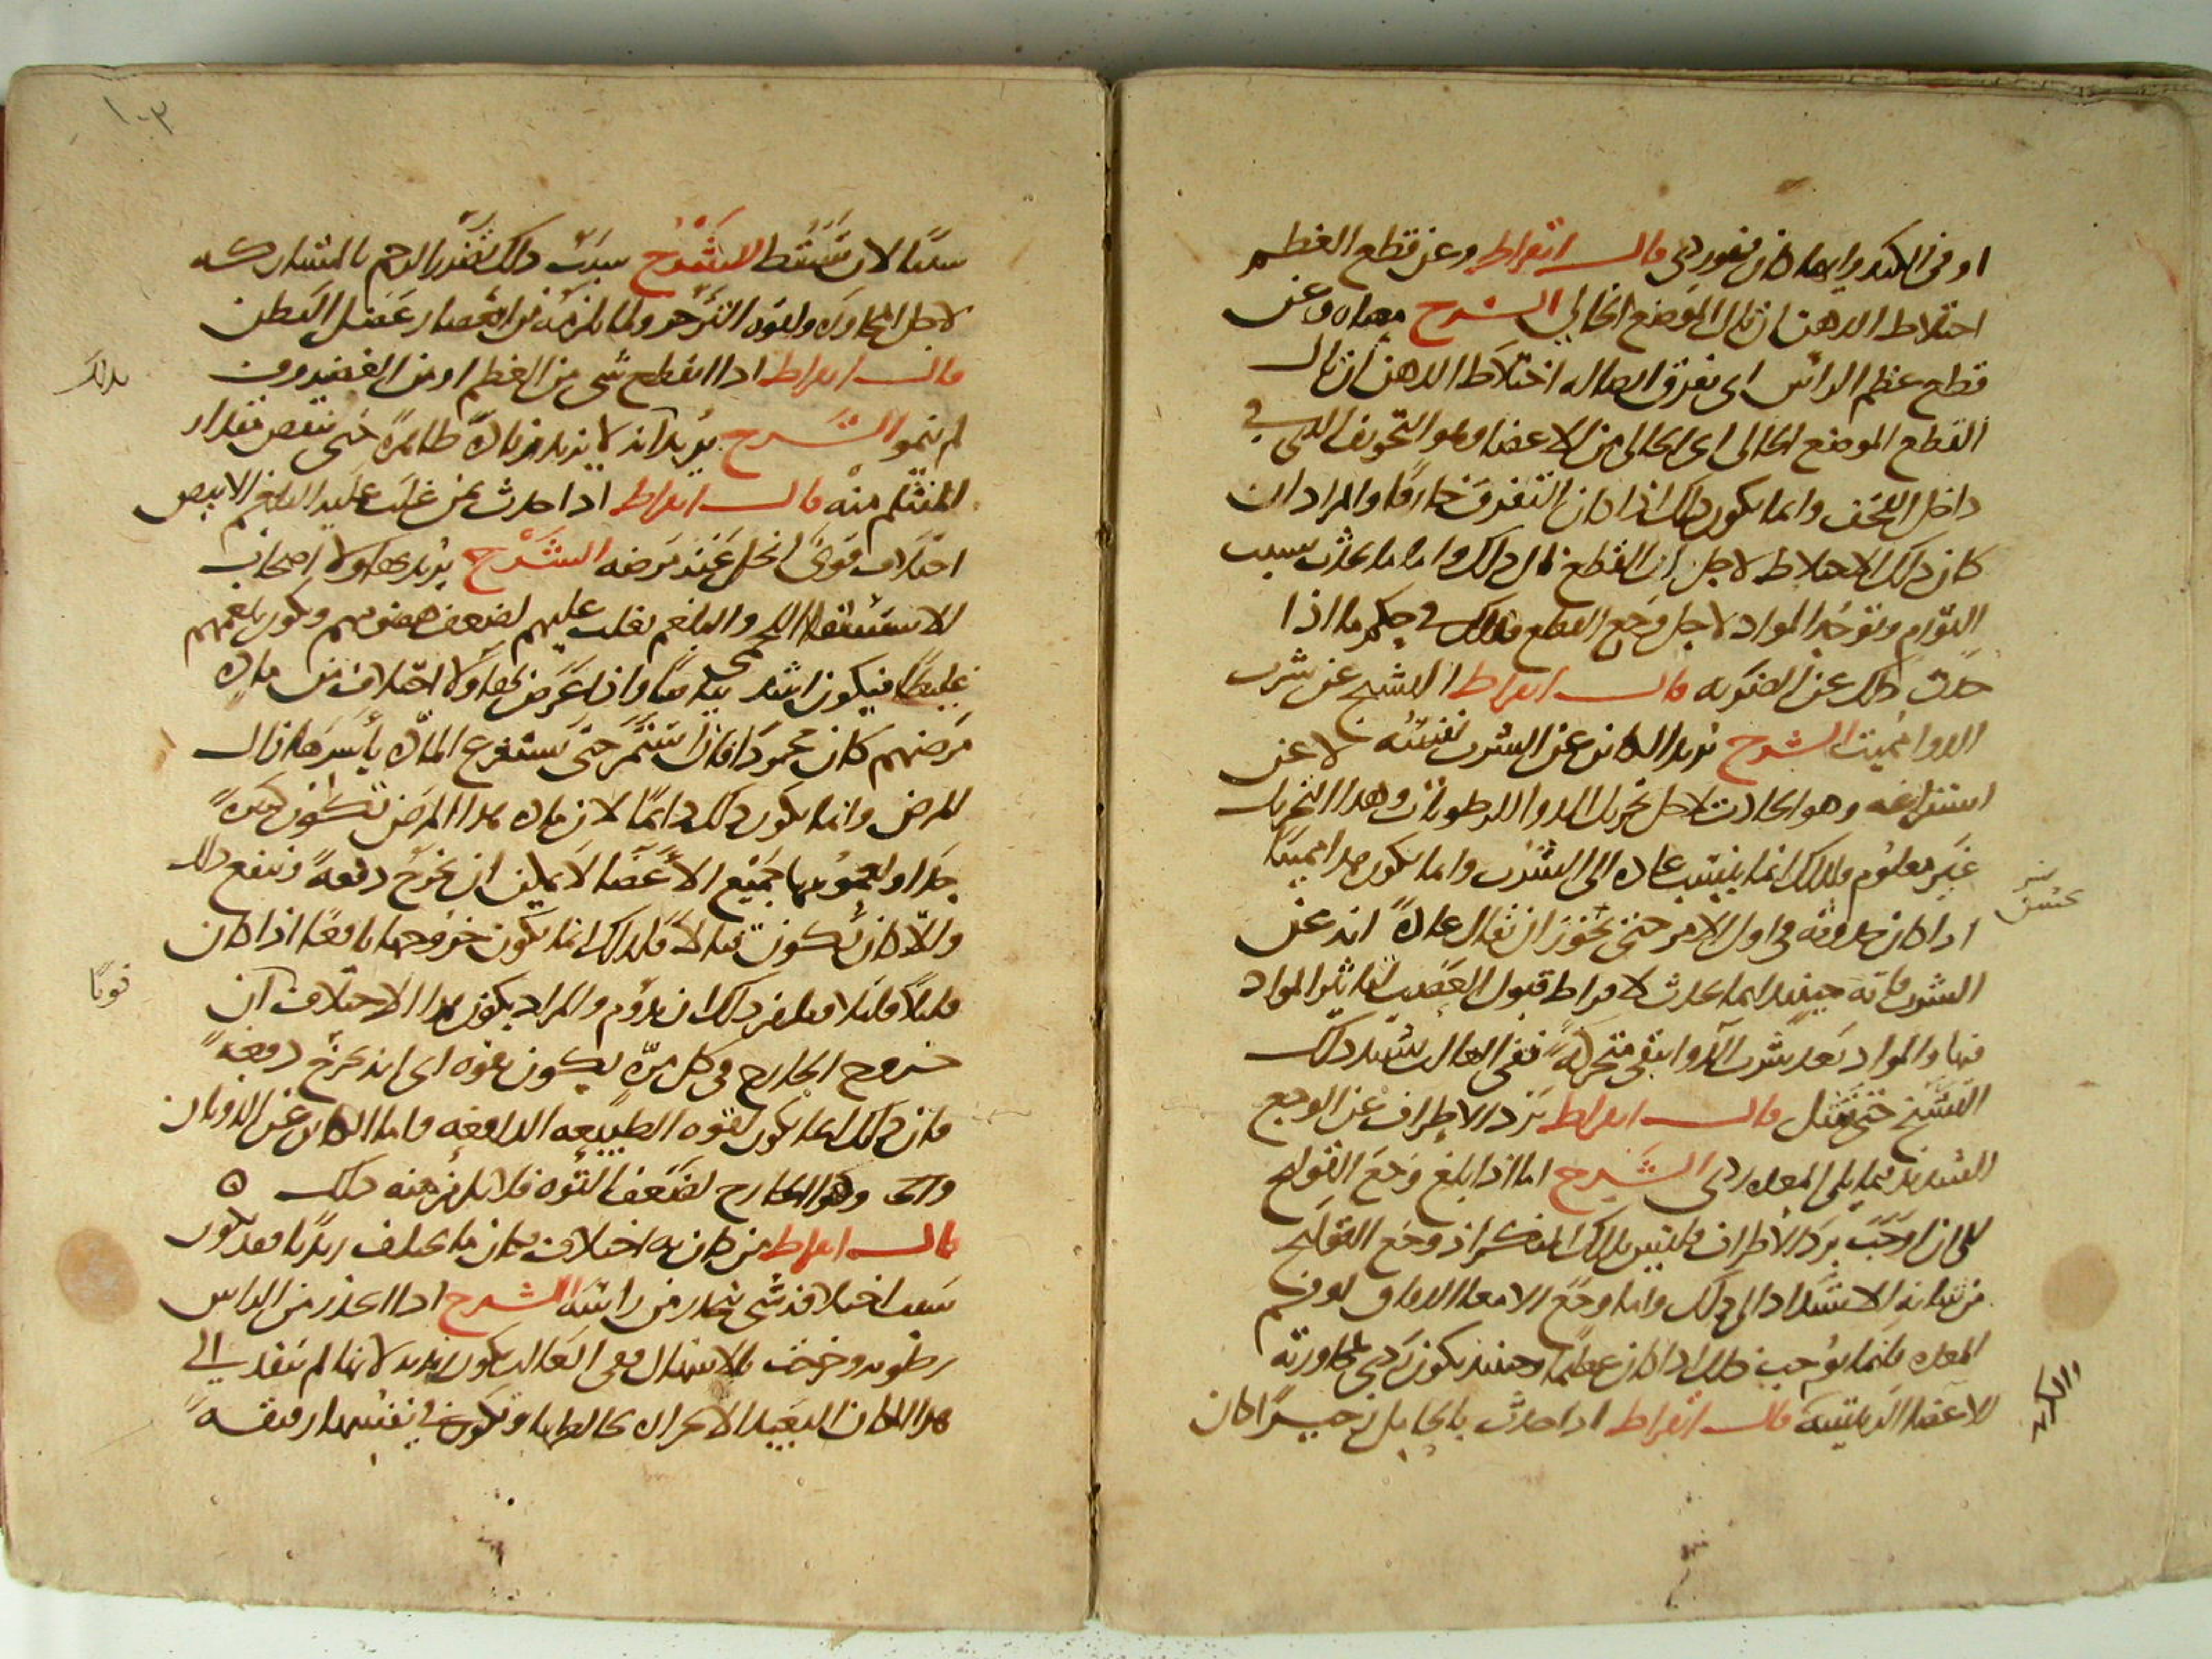 او في الكبد وايهما كان فهو ردي قال ابقراط وعن قطع العظم
اختلاط الذهن ان نال الموضع الخالي الشرح معناه وعن
قطع عظم الراس اي تفرق اتصاله اختلاط الذهن ان نال
القطع الموضع الخالي اي الخالي من الاعضا وهو التجويف الذي في
داخل القحف وانما يكون ذلك اذا كان التفرق خارقا والمراد ان
كان ذلك الاختلاط لاجل ان القطع نال ذلك واما ما يحدث بسبب
التورم وتوجه المواد لاجل وجع القطع فذلك في حكم ما اذا
حدث ذلك عن الضربه قال ابقراط التشنج عن شرب
الدوا مميت الشرح يريد الكائن عن الشرب نفسه لا عن
استفراغه وهو الحادث لاجل تحريك الدوا للرطوبات وهذا التحريك
غير معلوم فلذلك انما ينسب عاده الى الشرب وانما يكون هذا مميتا
اذا كان حدوثه في اول الامر حتى يجوز ان يقال عادة انه عن
الشرب فانه حينئذ انما يحدث لافراط قبول العصب لتاثير المواد
فيها والمواد بعد شرب الدوا تبقى متحركة ففي الغالب يشتد ذلك
التشنج حتى يقتل قال ابقراط برد الاطراف عن الوجع
الشديد فيما يلي المعده ردي الشرح اما اذا بلغ وجع القولنج
الى ان اوجب برد الاطراف فليس بذلك المنكر اذ وجع القولنج
من شانه الاشتداد الى ذلك واما وجع الامعا الدقاق او فم
المعده فانما يوجب ذلك اذا كان عظيما وحينئذ يكون ردي لمجاورته
الاعضا الرئيسه قال ابقراط اذا حدث بالحامل زحير كان
سببا لان تسقط الشرح سبب ذلك تضرر الرحم بالمشاركه
لاجل المجاورة ولقوه التزحر ولما يلزمه من انعصار عضل البطن
قال ابقراط اذا انقطع شي من العظم او من الغضروف
لم ينمو الشرح يريد انه لا يزيد زيادة ظاهرة حتى ينقص مقدار
المنثلم منه قال ابقراط اذا حدث بمن غلب عليه البلغم الابيض
اختلاف قوي انحل عنه مرضه الشرح يريد بهاولا اصحاب
الاستسقا اللحمي والبلغم يغلب عليهم لضعف هضومهم ويكون بلغمهم
غليظا فيكون اشد بياضا وان عرض لهاولا اختلاف من ماده
مرضهم كان محمودا فان استمر حتى يستفرغ المادة باسرها زال
المرض وانما يكون ذلك دائما لان ماده هذا المرض تكون كثيرة
جدا ولعمومها جميع الاعضا لا يمكن ان تخرج دفعة وينفع ذلك
والا كان يكون قتالا فلذلك انما يكون خروجها نافعا اذا كان
قليلا قليلا فيلزم ذلك ان يدوم والمراد بكون هذا الاختلاف ان
خروج الخارج في كل مرة يكون بقوه اي انه يخرج دفعة
فان ذلك انما يكون لقوه الطبيعه الدافعه واما الكائن عن الذوبان
وهو الخارج لضعف القوه فلا يلزمه ذلك ه
قال ابقراط من كان به اختلاف وكان ما يختلف زبديا فقد يكون
سبب اختلافه شي ينحدر من راسه الشرح اذا انحدر من الراس
رطوبه وخرجت بالاسهال ففي الغالب يكون زبديه لانها لم تنفذ الى
هذا المكان البعيد الا بحراك يخالطها وتكون في نفسها رقيقه